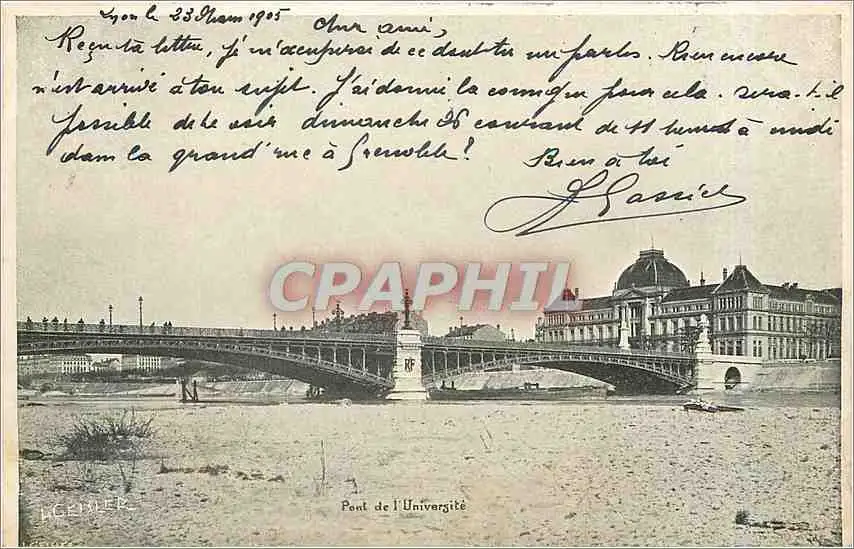 Lyon le 23 Mars 1905
Cher ami,
Reçu ta lettre, je m'occuperai de ce dont tu me parles. Rien encore
n'est arrivé à ton sujet. J'ai donné la consigne pour cela. Sera-t-il
possible de te voir dimanche 26 courant de 11 heures à midi
dans la grand'rue à Grenoble!
Bien à toi
CPARAMA
PHIL
RF
L. GEISLER
Pont de l'Université